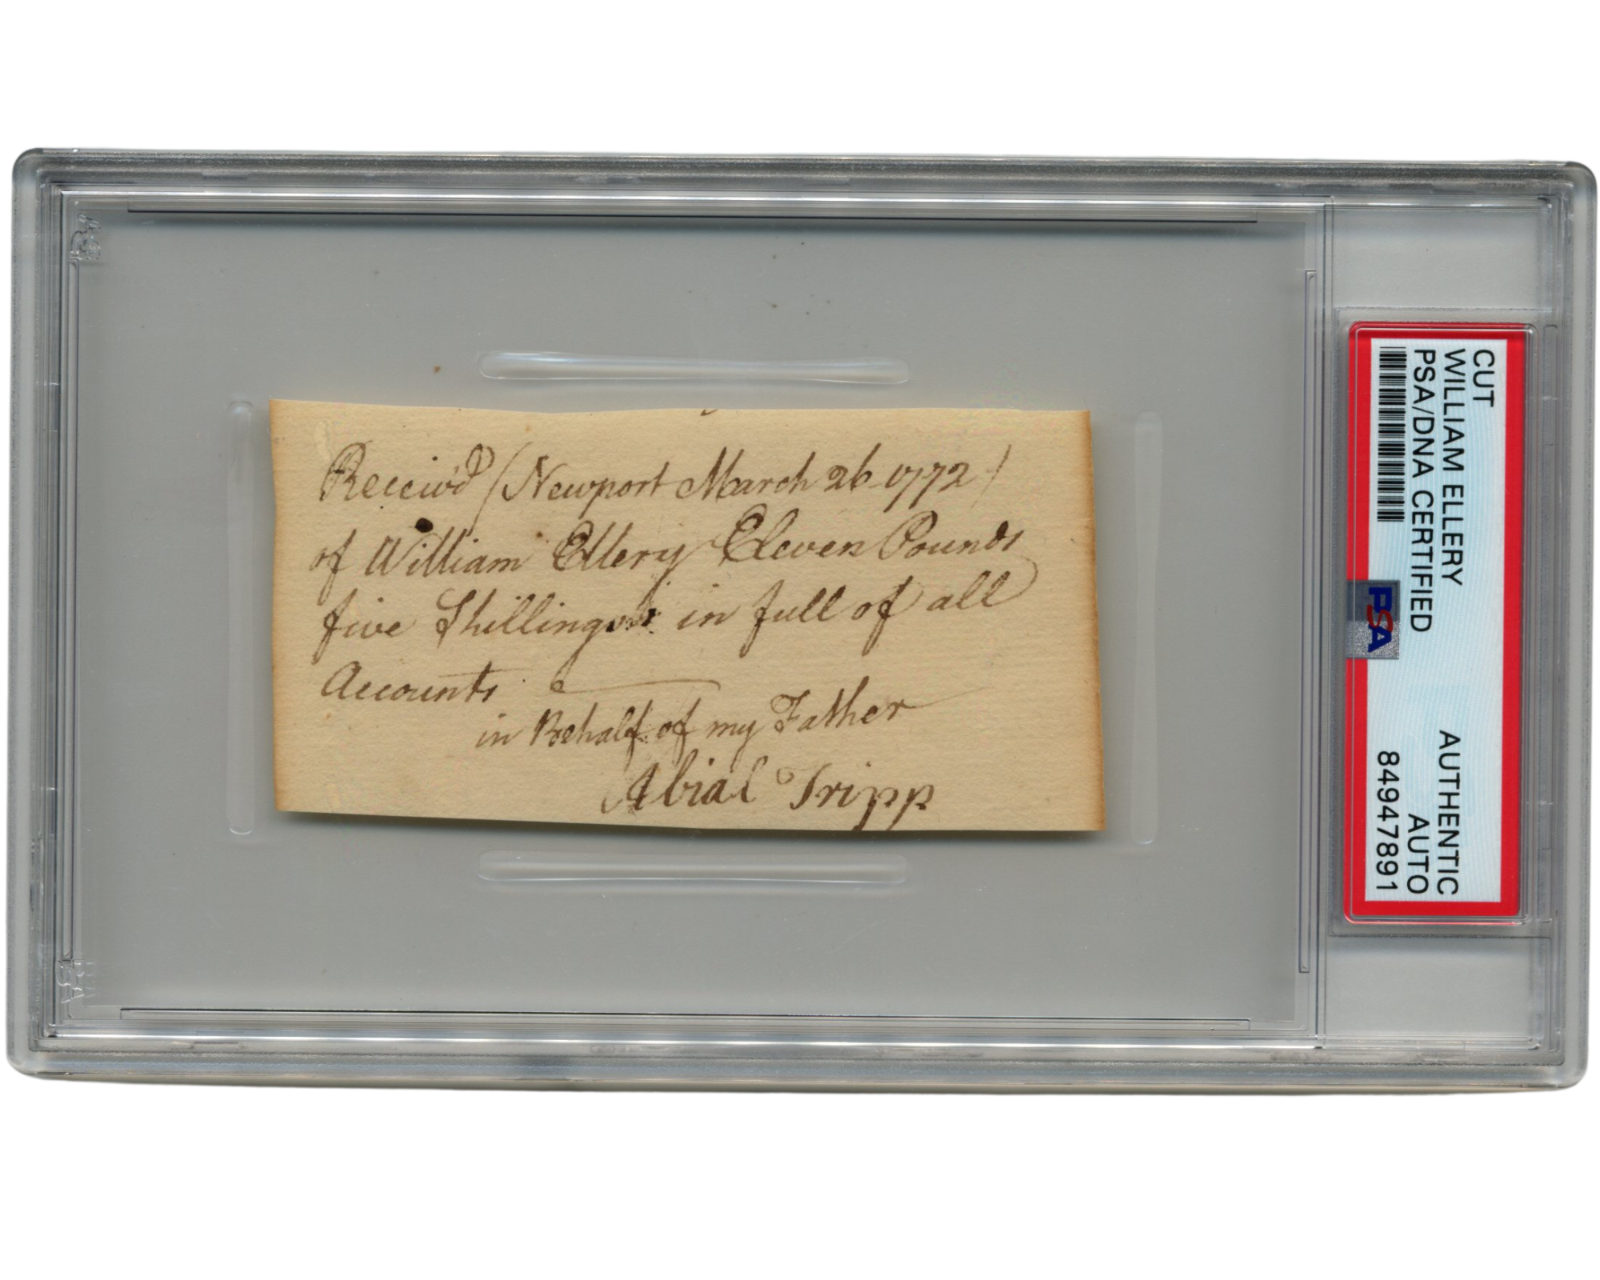 Receiv'd (Newport March 26 1772)
of William Ellery Eleven Pounds
five Shillings in full of all
Accounts
in Behalf of my Father
Abial Tripp
CUT
WILLIAM ELLERY
PSA/DNA CERTIFIED
AUTHENTIC
AUTO
84947891
PSA